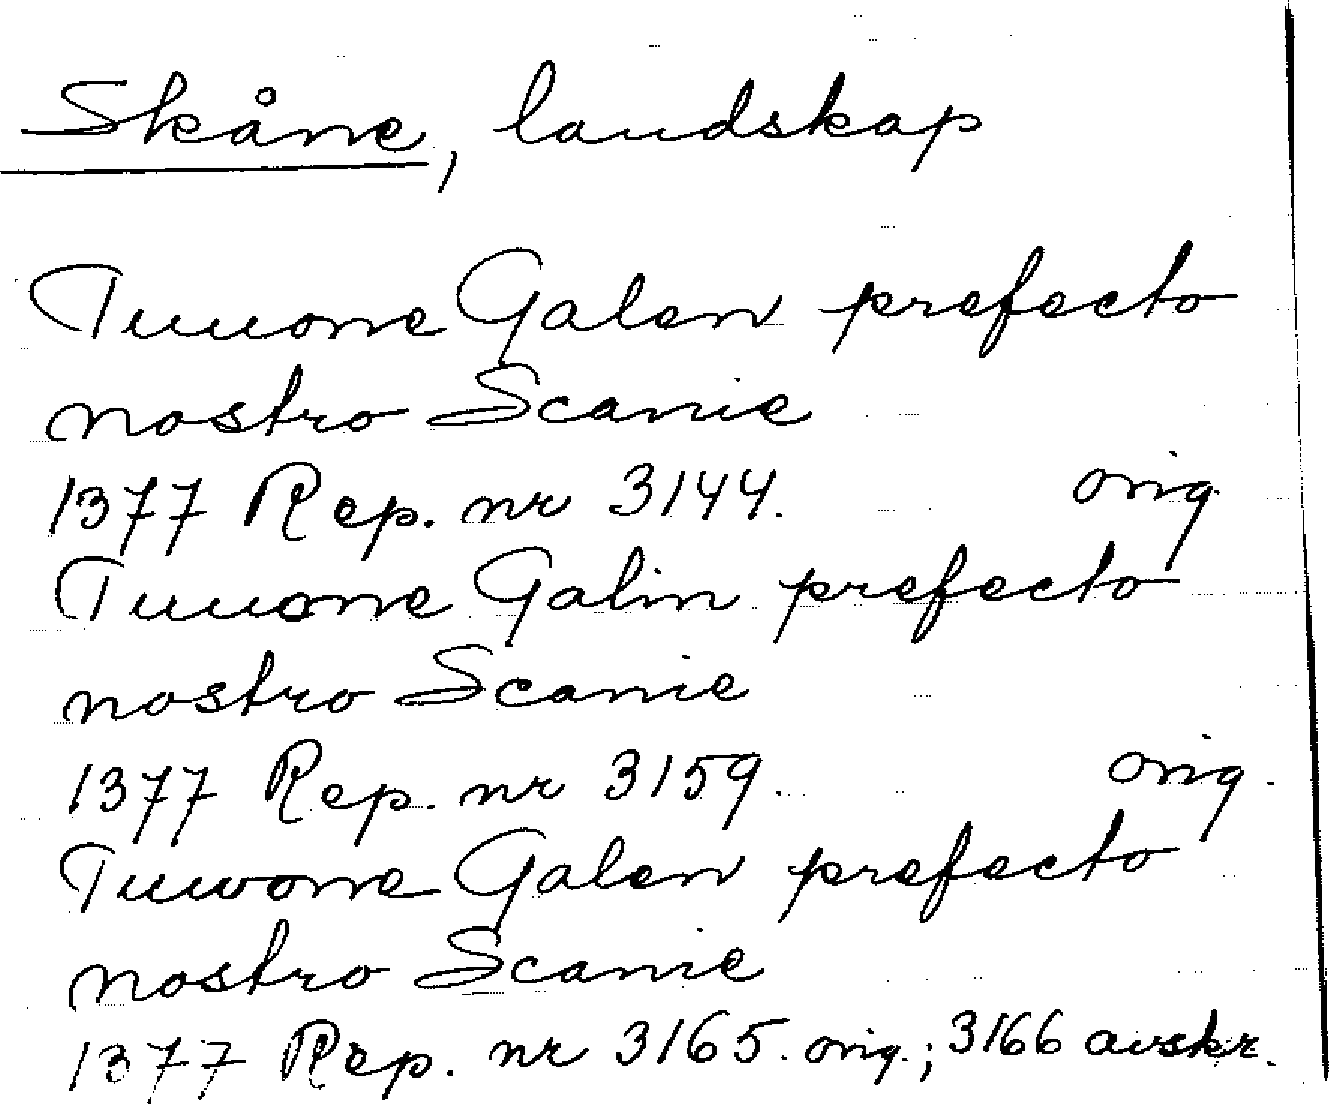 Skåne, landskap
Tuuone Galen prefecto
nostro Scanie
1377 Rep. nr 3144. orig.
Tuuone Galin prefecto
nostro Scanie
1377 Rep. nr 3159. orig.
Tuwone Galen prefecto
nostro Scanie
1377 Rep. nr 3165. orig.; 3166 avskr.